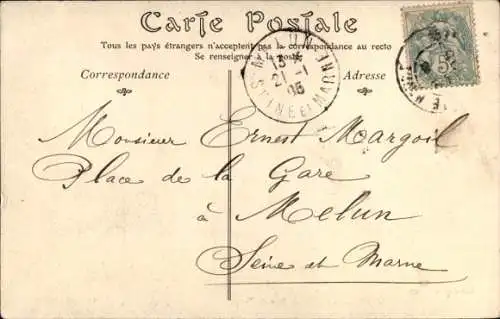 Carte Postale
Tous les pays étrangers n'acceptent pas la correspondance au recto
Se renseigner à la poste.
Correspondance
Adresse
MELUN
13
21 -1
05
SEINE ET MARNE
5
Monsieur Ernest Margoil
Place de la Gare
à Melun
Seine et Marne